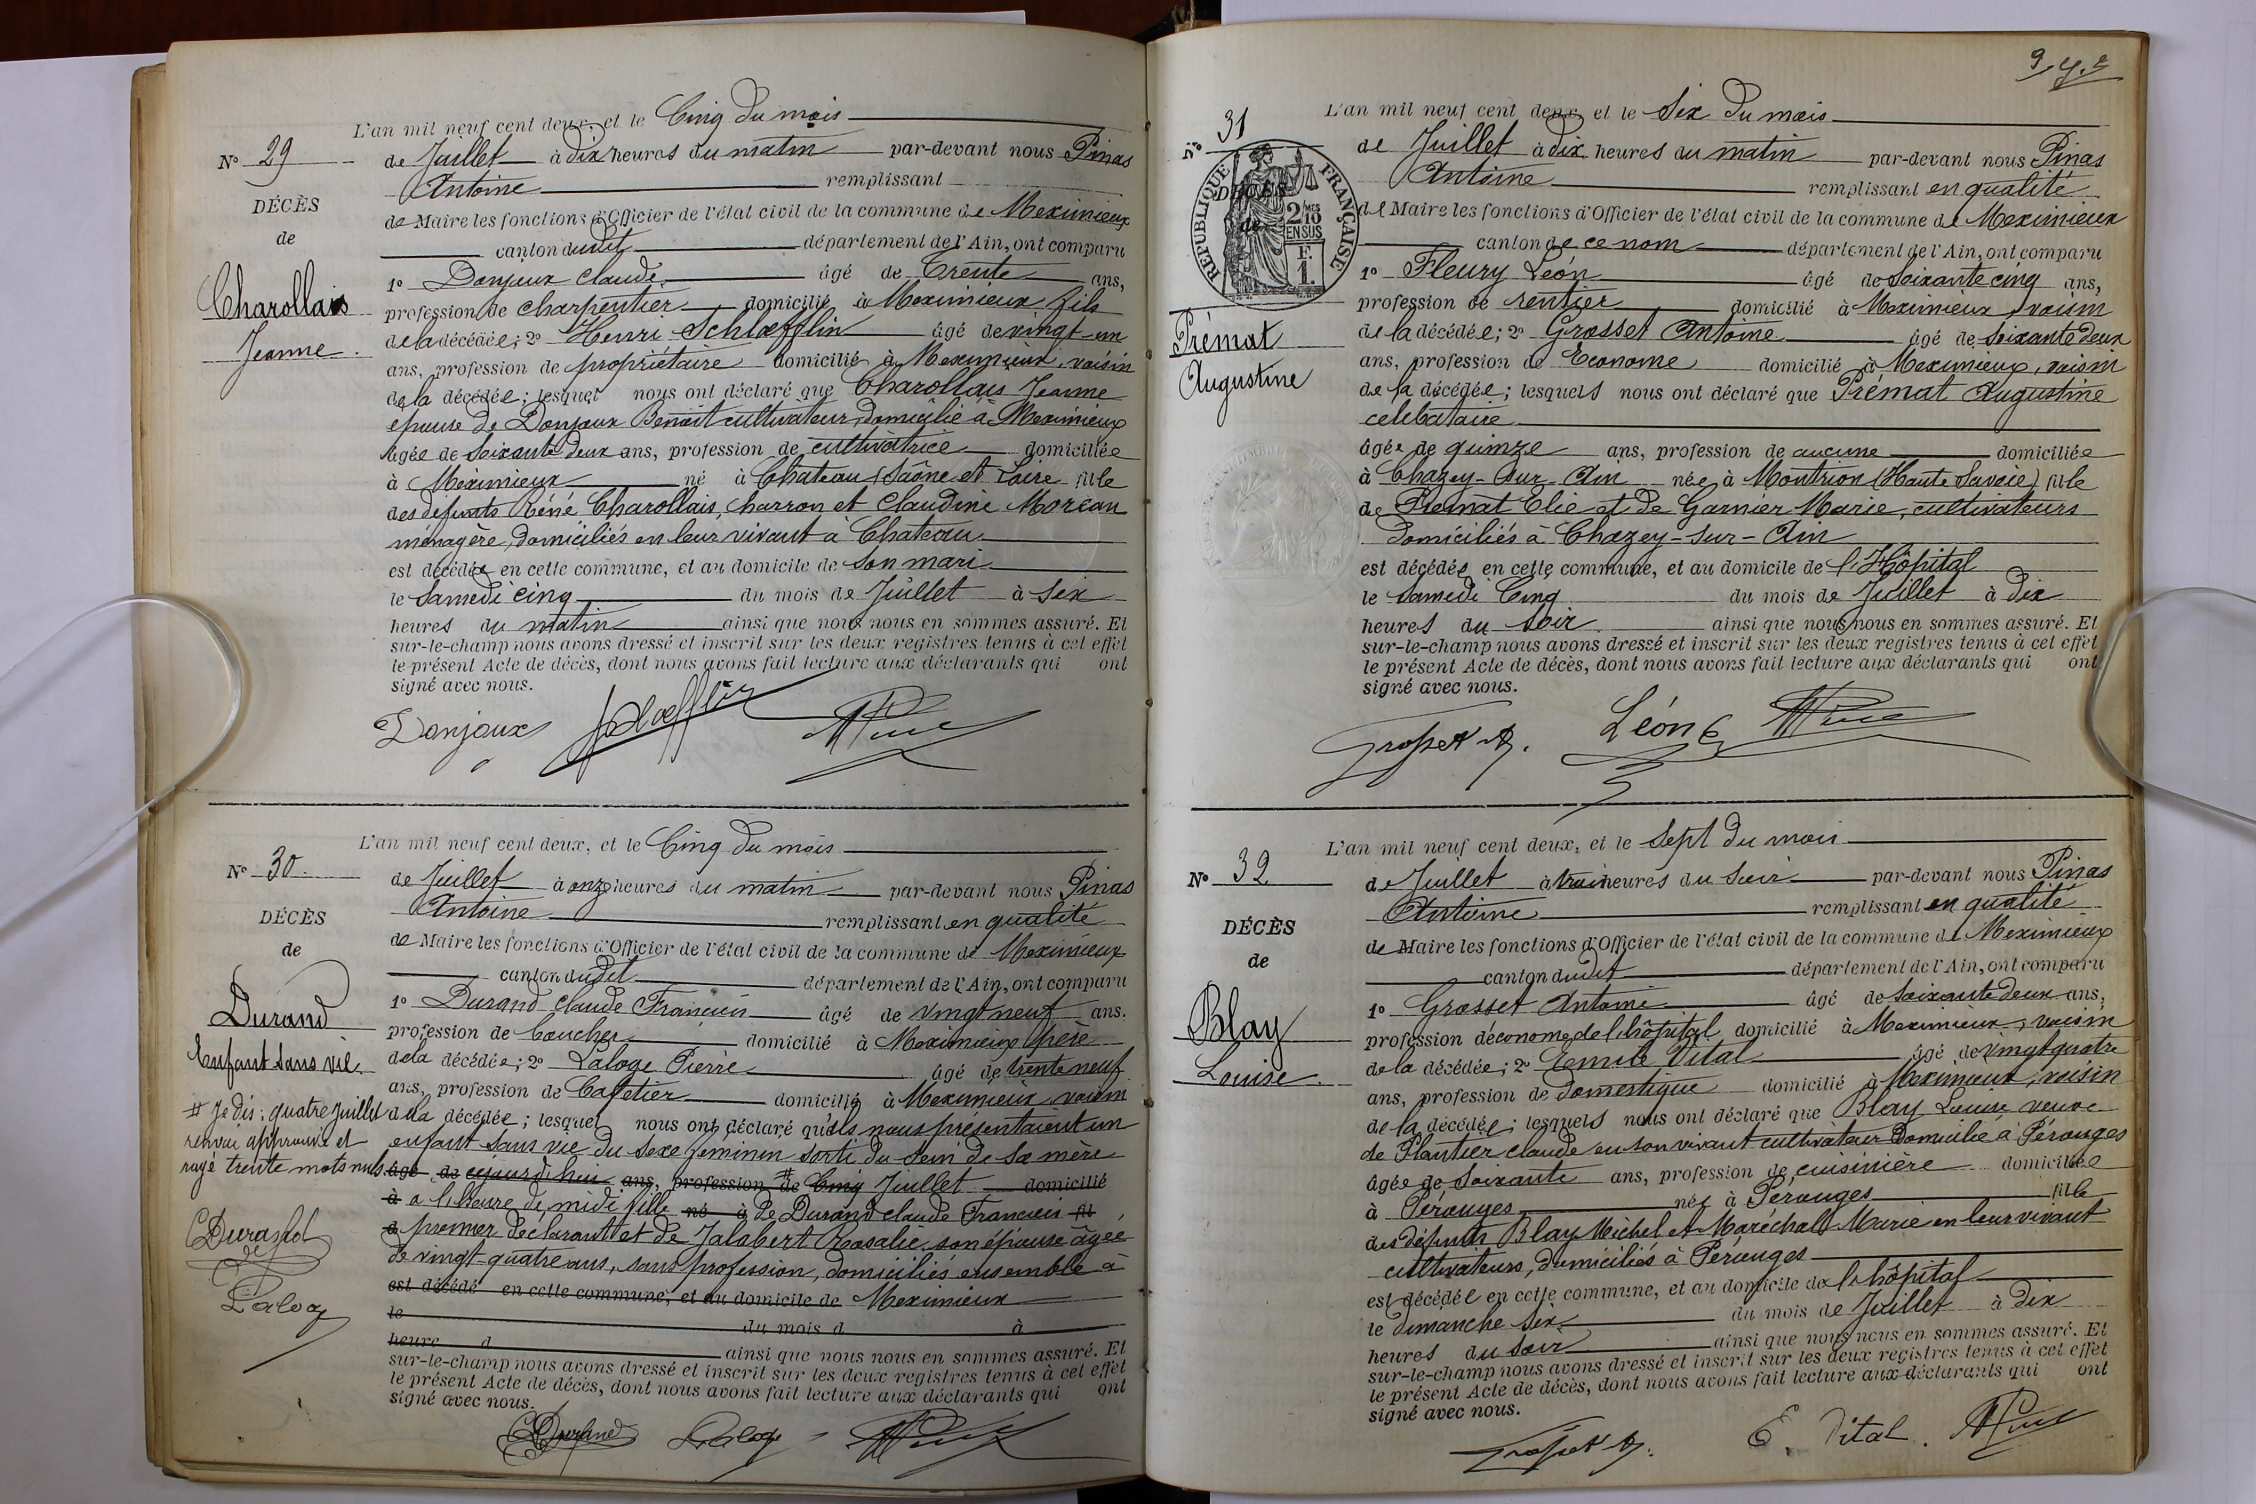 L'an mil neuf cent deux, et le Cinq du mois
N° 29
de Juillet à dix heures du matin par-devant nous Pinas
Antoine remplissant
DÉCÈS
de Maire les fonctions d'Officier de l'état civil de la commune de Meximieux
de
canton dudit département de l'Ain, ont comparu
1° Donjoux Claude âgé de Trente ans,
Charollais
profession de charpentier domicilié à Meximieux fils
Jeanne.
de la décédée; 2° Henri Schlœfflin âgé de vingt-un
ans, profession de propriétaire domicilié à Meximieux, voisin
de la décédée; lesquel nous ont déclaré que Charollais Jeanne
épouse de Donjoux Benoit cultivateur, domicilié à Meximieux
âgée de soixante deux ans, profession de cultivatrice domiciliée
à Meximieux né à Chateau (Saône et Loire fille
des défunts Réné Charollais, charron et Claudine Moreau
ménagère, domiciliés en leur vivant à Chateau
est décédée en cette commune, et au domicile de son mari
le samedi cinq du mois de Juillet à six
heures du matin ainsi que nous nous en sommes assuré. Et
sur-le-champ nous avons dressé et inscrit sur les deux registres tenus à cet effet
le présent Acte de décès, dont nous avons fait lecture aux déclarants qui ont
signé avec nous.
Donjoux
L'an mil neuf cent deux, et le Cinq du mois
N° 30
de Juillet à onze heures du matin par-devant nous Pinas
Antoine remplissant en qualité
DÉCÈS
de Maire les fonctions d'Officier de l'état civil de la commune de Meximieux
de
canton dudit département de l'Ain, ont comparu
Durand
1° Durand Claude Francien âgé de vingt neuf ans.
profession de boucher domicilié à Meximieux père
Enfant sans vie.
de la décédée; 2° Laloge Pierre âgé de trente neuf
ans, profession de Cafetier domicilié à Meximieux, voisin
# Je dis: quatre juillet
renvoi approuvé et
rayé trente mots nuls
de la décédée; lesquel nous ont déclaré qu'ils nous présentaient un
enfant sans vie du sexe féminin sorti du sein de sa mère
âgé de cejourd'hui ans, profession de # Cinq Juillet domicilié
à a l'heure de midi fille né à de Durand Claude Francien fil
d premier déclarant et de Jalabert Rosalie son épouse âgée
de vingt-quatre ans, sans profession, domiciliés ensemble à
est décédé en cette commune, et au domicile de Meximieux
le du mois d à
heure d ainsi que nous nous en sommes assuré. Et
sur-le-champ nous avons dressé et inscrit sur les deux registres tenus à cet effet
le présent Acte de décès, dont nous avons fait lecture aux déclarants qui ont
signé avec nous.
CDurand
Laloge
CDurand Laloge
L'an mil neuf cent deux, et le Six du mois
N° 31
de Juillet à dix heures du matin par-devant nous Pinas
Antoine remplissant en qualité
DÉCÈS
de
RÉPUBLIQUE FRANÇAISE
2/10 MES
EN SUS
F.
1.
de Maire les fonctions d'Officier de l'état civil de la commune de Meximieux
canton de ce nom département de l'Ain, ont comparu
1° Fleury Léon âgé de soixante cinq ans,
profession de rentier domicilié à Meximieux, voisin
Prémat
Augustine
de la décédée; 2° Grosset Antoine âgé de soixante deux
ans, profession de Econome domicilié à Meximieux, voisin
de la décédée; lesquels nous ont déclaré que Prémat Augustine
celibataire
âgée de quinze ans, profession de aucune domiciliée
à Chazey-sur-Ain née à Montrion (Haute Savoie) fille
de Premat Elie et de Garnier Marie, cultivateurs
domiciliés à Chazey-sur-Ain
est décédée en cette commune, et au domicile de l'Hôpital
le samedi Cinq du mois de Juillet à dix
heures du soir ainsi que nous nous en sommes assuré. Et
sur-le-champ nous avons dressé et inscrit sur les deux registres tenus à cet effet
le présent Acte de décès, dont nous avons fait lecture aux déclarants qui ont
signé avec nous.
Grosset A. Léon
L'an mil neuf cent deux, et le sept du mois
N° 32
de Juillet à trois heures du soir par-devant nous Pinas
Antoine remplissant en qualité
DÉCÈS
de Maire les fonctions d'Officier de l'état civil de la commune de Meximieux
de
canton dudit département de l'Ain, ont comparu
Blay
Louise.
1° Grosset Antoine âgé de soixante deux ans,
profession d'économe de l'hôpital domicilié à Meximieux, voisin
de la décédée; 2° Emile Vital âgé de vingt quatre
ans, profession de domestique domicilié à Meximieux, voisin
de la décédée; lesquels nous ont déclaré que Blay Louise veuve
de Plantier Claude en son vivant cultivateur domicilié à Pérouges
âgée de soixante ans, profession de cuisinière domiciliée
à Pérouges née à Pérouges fille
des défunts Blay Michel et Maréchal Marie en leur vivant
cultivateurs, domiciliés à Pérouges
est décédée en cette commune, et au domicile de l'hôpital
le dimanche six du mois de Juillet à dix
heures du soir ainsi que nous nous en sommes assuré. Et
sur-le-champ nous avons dressé et inscrit sur les deux registres tenus à cet effet
le présent Acte de décès, dont nous avons fait lecture aux déclarants qui ont
signé avec nous.
Grosset A. E. Vital.